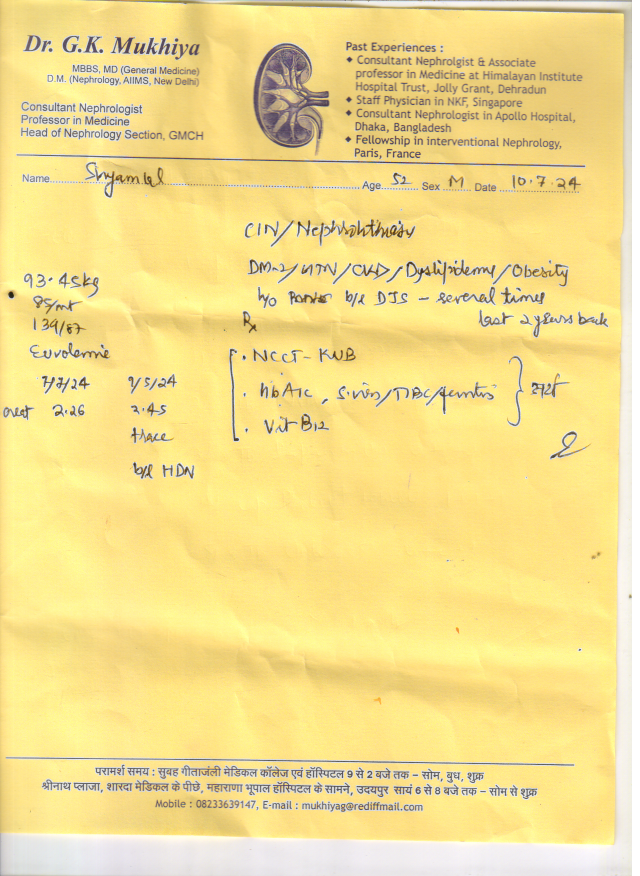 Dr. G.K. Mukhiya
MBBS, MD (General Medicine)
D.M. (Nephrology, AIIMS, New Delhi)
Consultant Nephrologist
Professor in Medicine
Head of Nephrology Section, GMCH
Past Experiences :
◆ Consultant Nephrolgist & Associate
professor in Medicine at Himalayan Institute
Hospital Trust, Jolly Grant, Dehradun
◆ Staff Physician in NKF, Singapore
◆ Consultant Nephrologist in Apollo Hospital,
Dhaka, Bangladesh
◆ Fellowship in interventional Nephrology,
Paris, France
Name Shyamlal Age 52 Sex M Date 10.7.24
CIN/Nephrolithiasis
DM-2/HTN/CKD/Dyslipidemia/Obesity
h/o b/l DJS - several times
last 2 years back
93.45kg
85/mt
139/87
Euvolemic
7/7/24 9/5/24
creat 2.26 2.45
trace
b/l HDN
Rx
. NCCT-KUB
. HbA1c, S.iron/TIBC/ferritin
. Vit B12
परामर्श समय : सुबह गीताजंली मेडिकल कॉलेज एवं हॉस्पिटल 9 से 2 बजे तक – सोम, बुध, शुक्र
श्रीनाथ प्लाजा, शारदा मेडिकल के पीछे, महाराणा भूपाल हॉस्पिटल के सामने, उदयपुर सायं 6 से 8 बजे तक – सोम से शुक्र
Mobile : 08233639147, E-mail : mukhiyag@rediffmail.com